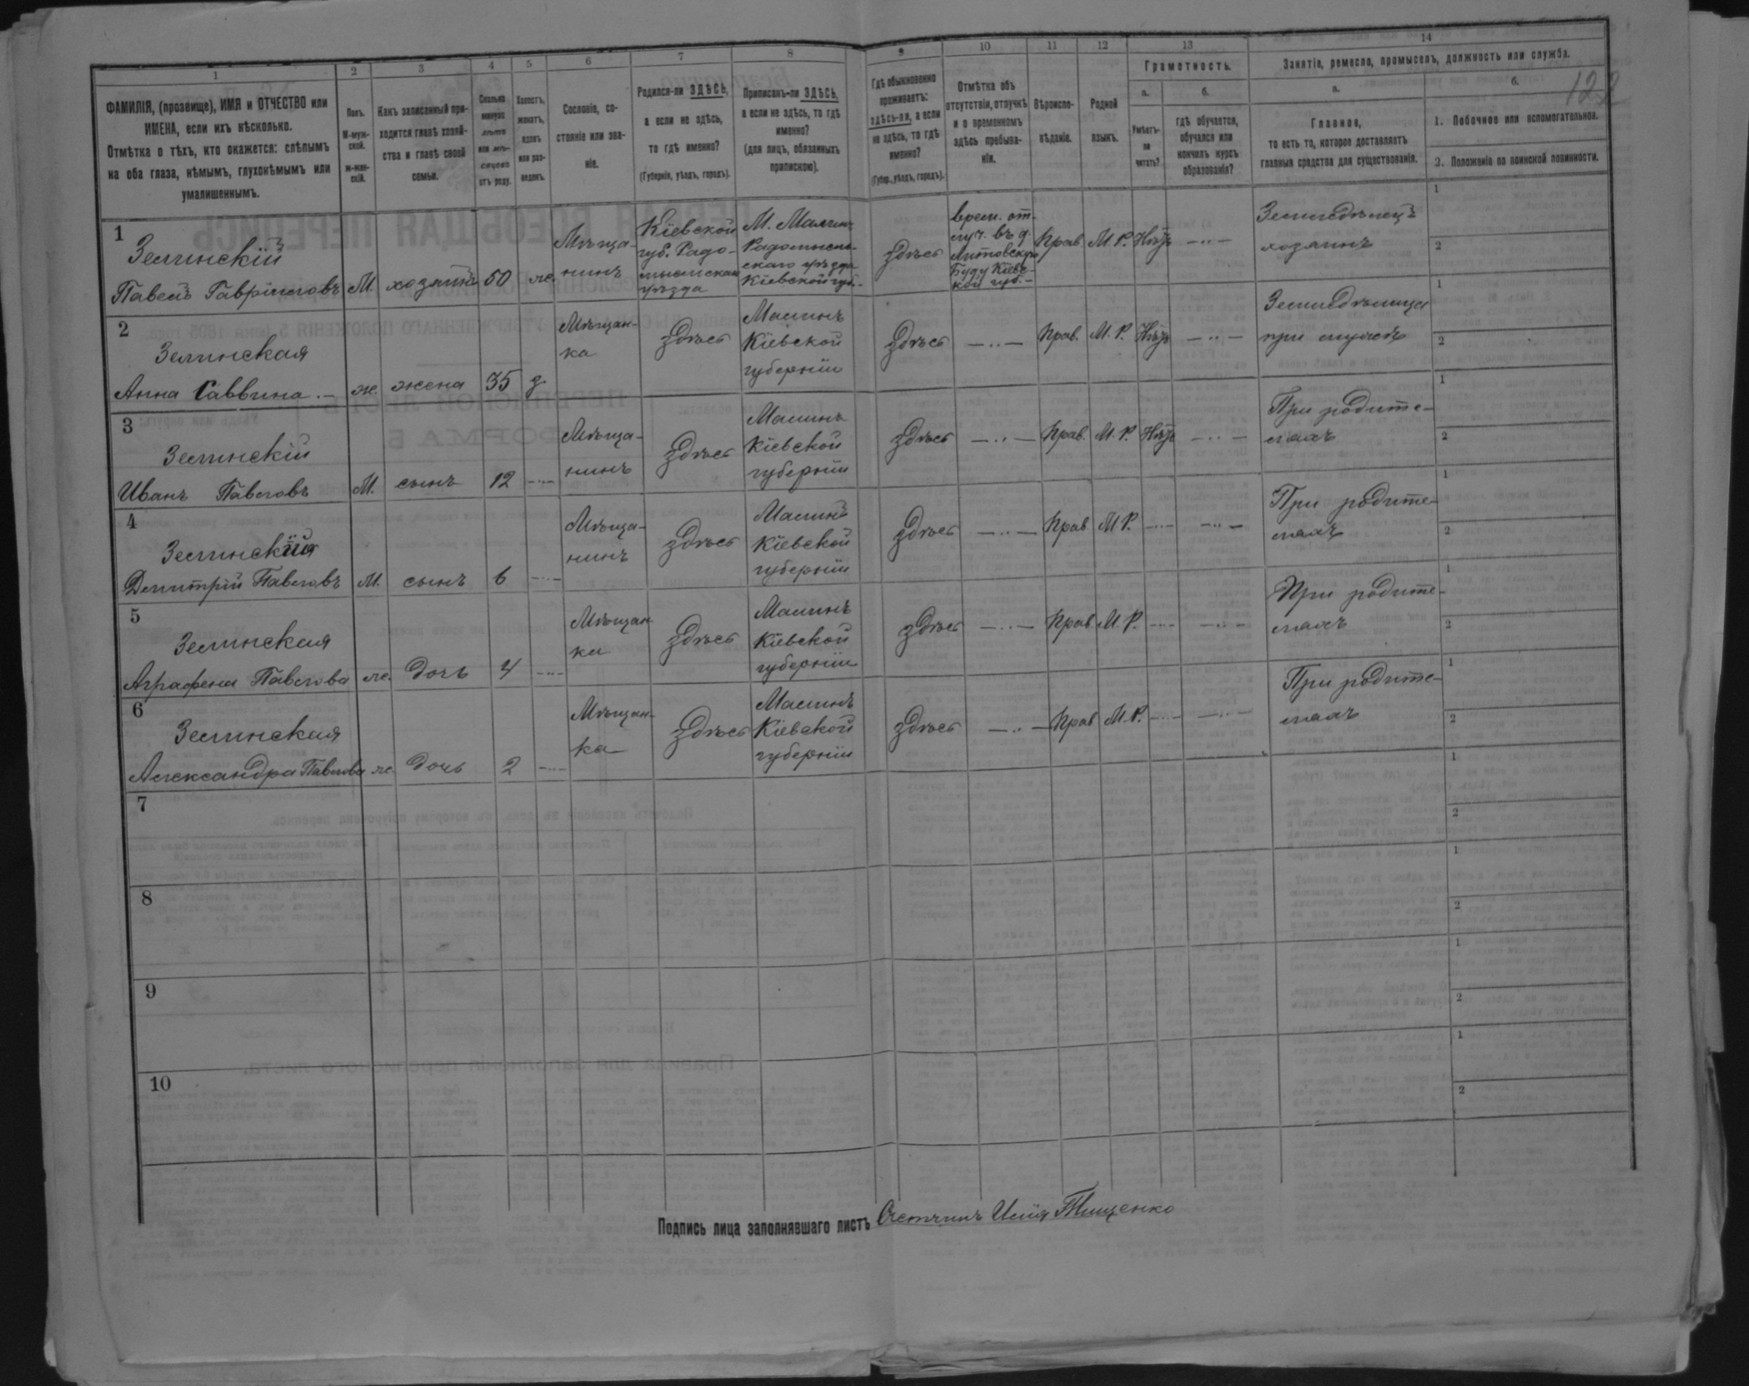 1 2 3 4 5 6 7 8 9 10 11 12 13 14
122
ФАМИЛІЯ, (прозвище), ИМЯ и ОТЧЕСТВО или
ИМЕНА, если ихъ нѣсколько.
Отмѣтка о тѣхъ, кто окажется: слѣпымъ
на оба глаза, нѣмымъ, глухонѣмымъ или
умалишеннымъ.
Полъ.
М-муж-
ской.
ж-жен-
скій.
Какъ записанный при-
ходится главѣ хозяй-
ства и главѣ своей
семьи.
Сколько
минуло
лѣтъ
или мѣ-
сяцевъ
отъ роду.
Холостъ,
женатъ,
вдовъ
или раз-
веденъ.
Сословіе, со-
стояніе или зва-
ніе.
Родился-ли ЗДѢСЬ,
а если не здѣсь,
то гдѣ именно?
(Губернія, уѣздъ, городъ).
Приписанъ-ли ЗДѢСЬ,
а если не здѣсь, то гдѣ
именно?
(для лицъ, обязанныхъ
припискою).
Гдѣ обыкновенно
проживаетъ:
здѣсь-ли, а если
не здѣсь, то гдѣ
именно?
(Губер., уѣздъ, городъ).
Отмѣтка объ
отсутствіи, отлучкѣ
и о временномъ
здѣсь пребыва-
ніи.
Вѣроиспо-
вѣданіе.
Родной
языкъ.
Грамотность.
а.
Умѣетъ-
ли
читать?
б.
гдѣ обучается,
обучался или
кончилъ курсъ
образованія?
Занятіе, ремесло, промыселъ, должность или служба.
а.
Главное,
то есть то, которое доставляетъ
главныя средства для существованія.
б.
1. Побочное или вспомогательное.
2. Положеніе по воинской повинности.
1
Зелинскій
Павелъ Гавріиловъ М. хозяинъ 50 ж.
Мѣща-
нинъ
Кіевской
губ. Радо-
мысльскаго
уѣзда
М. Малинъ
Радомысль-
скаго уѣзда
Кіевской губ.
здѣсь
врем. от-
луч. въ д.
Литовскую
Буду Кіев-
кой губ.
Прав. М.Р. Нѣтъ —..—
Земледѣлецъ
хозяинъ
1
2
2
Зелинская
Анна Саввина.— ж. жена 35 з.
Мѣщан-
ка
здѣсь
Малинъ
Кіевской
губерніи
здѣсь —..— Прав. М.Р. Нѣтъ —..—
Земледѣлица
при мужѣ
1
2
3
Зелинскій
Иванъ Павловъ М. сынъ 12 —..—
Мѣща-
нинъ
здѣсь
Малинъ
Кіевской
губерніи
здѣсь —..— Прав. М.Р. Нѣтъ —..—
При родите-
ляхъ
1
2
4
Зелинскій
Димитрій Павловъ М. сынъ 6 —..—
Мѣща-
нинъ
здѣсь
Малинъ
Кіевской
губерніи
здѣсь —..— Прав М.Р. —..— —..—
При родите-
ляхъ
1
2
5
Зелинская
Аграфена Павлова ж. дочь 4 —..—
Мѣщан-
ка
здѣсь
Малинъ
Кіевской
губерніи
здѣсь —..— Прав М.Р. —..— —..—
При родите-
ляхъ
1
2
6
Зелинская
Александра Павлова ж. дочь 2 —..—
Мѣщан-
ка
здѣсь
Малинъ
Кіевской
губерніи
здѣсь —..— Прав М.Р. —..— —..—
При родите-
ляхъ
1
2
7
1
2
8
1
2
9
1
2
10
1
2
Подпись лица заполнявшаго листъ Счетчикъ Илія Тищенко